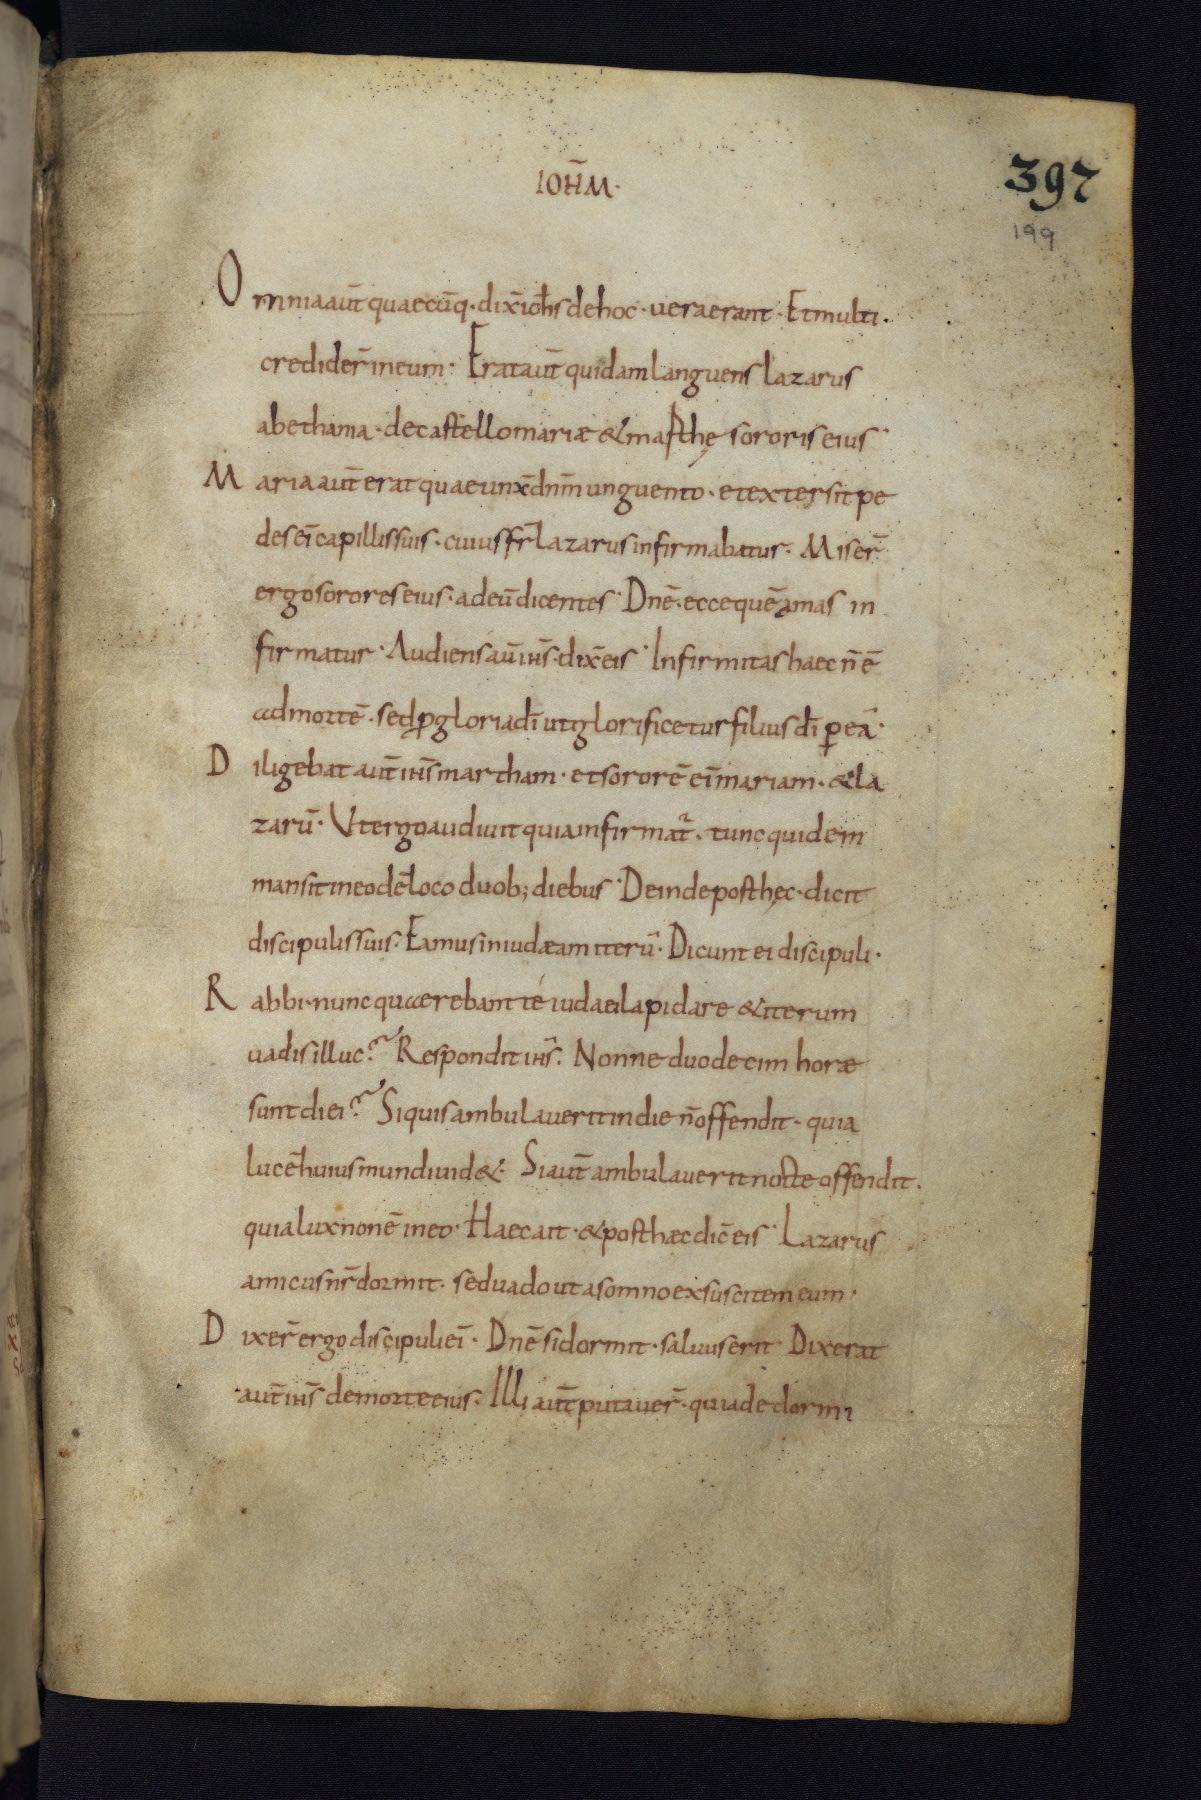 IOH̅M·
397
199
Omnia aut̅ quaecu̅q·dix̅ ioh̅s de hoc·uera erant·Et multi·
credider̅ in eum·Erat aut̅ quidam languens lazarus
a bethania·de castello mariæ & marthę sororis eius·
Maria aut̅ erat quae unx̅ dn̅m unguento·et extersit pe
des ei̅ capillis suis·cuius fr̅ lazarus infirmabatur·Miser̅
ergo sorores eius·ad eu̅ dicentes·Dn̅e·ecce que̅ amas in
firmatur·Audiens au̅ ih̅s·dix̅ eis·Infirmitas haec n̅ e̅
ad morte̅·sed p̱ gloria di̅ ut glorificetur filius di̅ p̱ ea̅·
Diligebat aut̅ ih̅s martham·et sorore̅ ei̅ mariam·& la
zaru̅·Vt ergo audiuit quia infirmat̅·tunc quidem
mansit in eode̅ loco duob; diebus·Deinde post hęc·dicit
discipulis suis·Eamus in iudæam iteru̅·Dicunt ei discipuli·
Rabbi·nunc quaerebant té iudaei lapidare & iterum
uadis illuc? Respondit ih̅s·Nonne duodecim horæ
sunt diei? Si quis ambulauerit in die n̅ offendit·quia
luce̅ huius mundi uid&·Si aut̅ ambulauerit nocte offendit·
quia lux non e̅ in eo·Haec ait·& post hæc dic̅ eis·Lazarus
amicus nr̅ dormit·sed uado ut a somno exsuscitem eum·
Dixer̅ ergo discipuli ei̅·Dn̅e si dormit·saluus erit Dixerat
aut̅ ih̅s de morte eius·Illi aut̅ putauer̅·quia de dormi